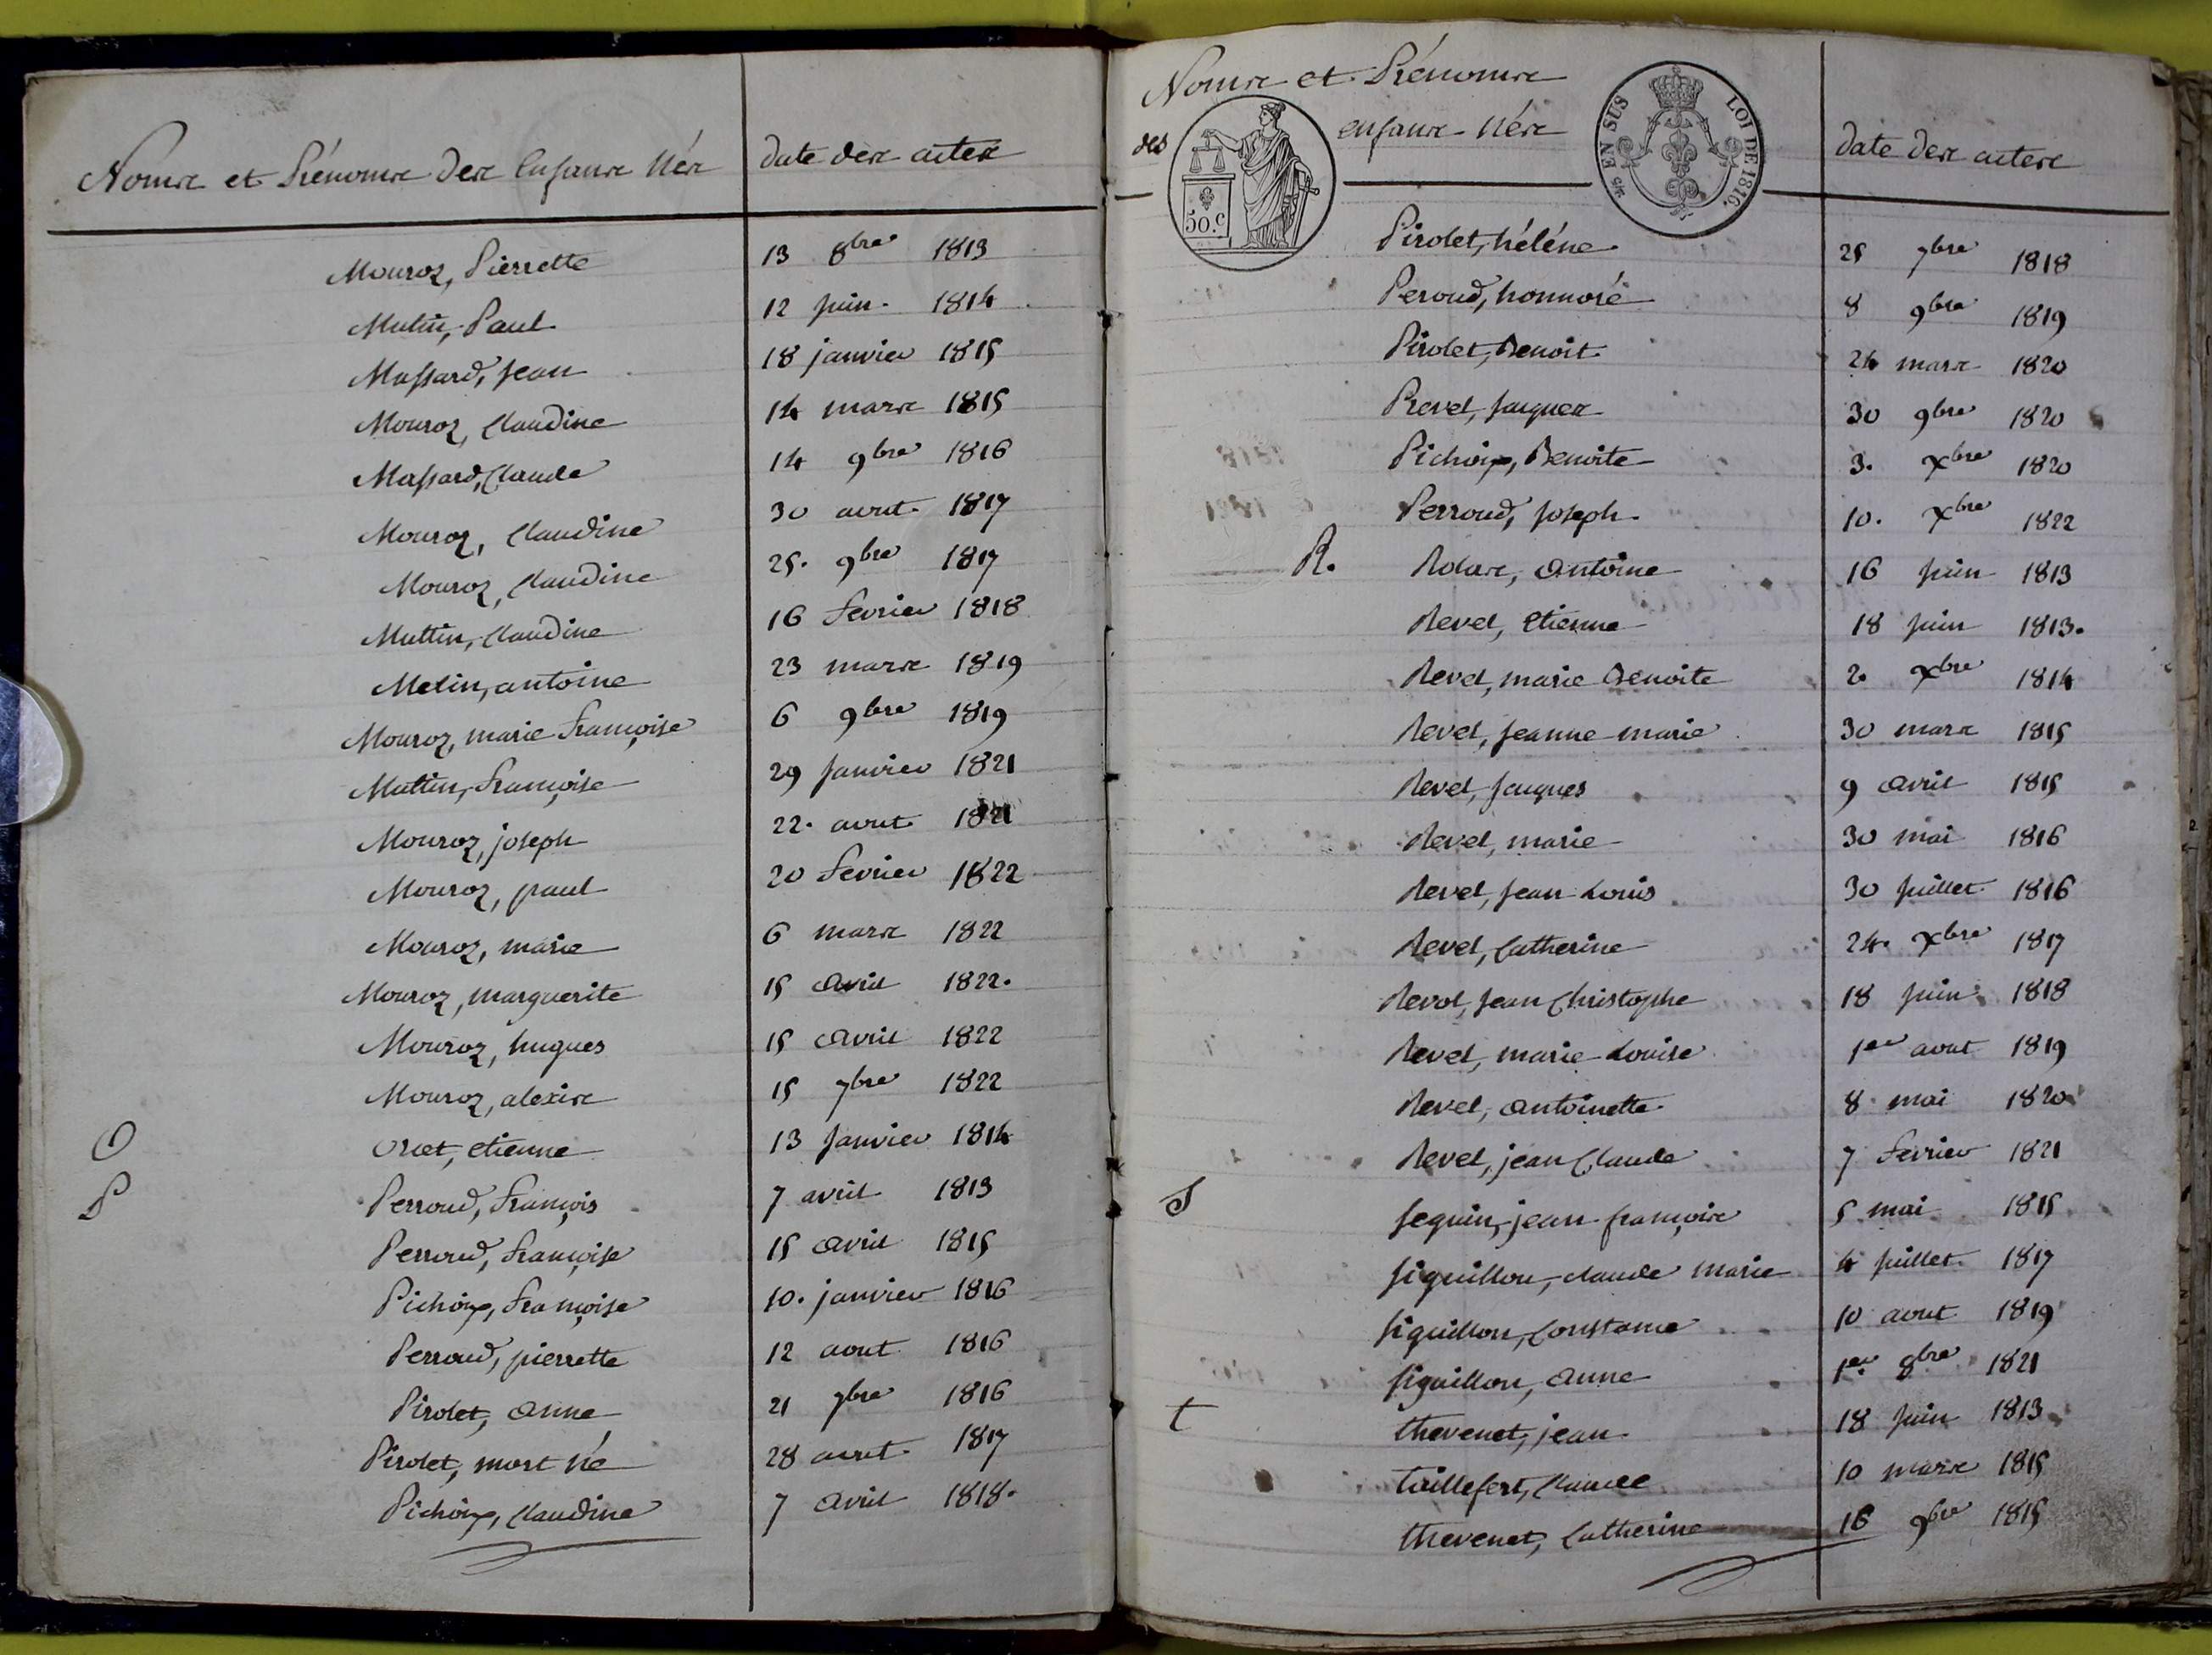 Noms et Prénoms des Enfans Nés date des actes
Mouroz, Pierrette 13 8bre 1813
Mutin, Paul 12 juin 1814
Massard, Jean 18 janvier 1815
Mouroz, Claudine 14 mars 1815
Massard, Claude 14 9bre 1816
Mouroz, Claudine 30 aout 1817
Mouroz, Claudine 25. 9bre 1817
Muttin, Claudine 16 Fevrier 1818
Metin, antoine 23 mars 1819
Mouroz, marie Françoise 6 9bre 1819
Muttin, Françoise 29 Janvier 1821
Mouroz, joseph 22. aout 1821
Mouroz, paul 20 Fevrier 1822
Mouroz, marie 6 mars 1822
Mouroz, marguerite 15 avril 1822.
Mouroz, hugues 15 avril 1822
Mouroz, alexis 15 7bre 1822
O Orcet, etienne 13 Janvier 1814
P Perroud, François 7 avril 1813
Perroud, Françoise 15 avril 1815
Pichoix, Françoise 10. janvier 1816
Perroud, pierrette 12 aout 1816
Pirolet, anne 21 7bre 1816
Pirolet, mort Né 28 aout 1817
Pichoix, Claudine 7 avril 1818.
Noms et Prénoms
des enfans Nés date des actes
50.C
EN SUS LOI DE 1816.
Pirolet, héléne 25 7bre 1818
Peroud, honnoré 8 9bre 1819
Pirolet, Benoit 24 mars 1820
Prevel, Jacques 30 9bre 1820
Pichoix, Benoite 3. Xbre 1820
Perroud, Joseph 10. Xbre 1822
R. Rolas, antoine 16 Juin 1813
Revel, etienne 18 Juin 1813.
Revel, marie Benoite 2. Xbre 1814
Revel, Jeanne marie 30 mars 1815
Revel, Jacques 9 avril 1815
Revel, marie 30 mai 1816
Revel, Jean Louis 30 Juillet 1816
Revel, Catherine 24. Xbre 1817
Revol, Jean Christophe 18 Juin 1818
Revel, marie Louise 1er aout 1819
Revel, antoinette 8 mai 1820
Revel, jean Claude 7 Fevrier 1821
S Seguin, jean françois 5 mai 1815
Siguillon, claude marie 4 Juillet 1817
Siguillon, Constance 10 aout 1819
Siguillon, anne 1er 8bre 1821
t thevenet, jean 18 Juin 1813
taillefert, Claude 10 mars 1815
thevenet, Catherine 16 9bre 1815